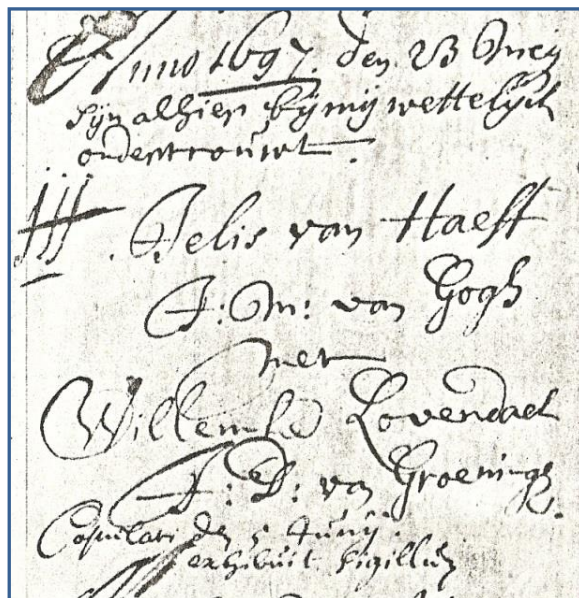 Anno 1697. den 23 Meij
sijn alhier bij mij wettelijck
ondertrouwt.
Jelis van Haeft
J: M: van Gogh
met
Willemke Lovendael
J: D: van Groeninge
Copulati den 5 Junij.
exhibuit sigillum